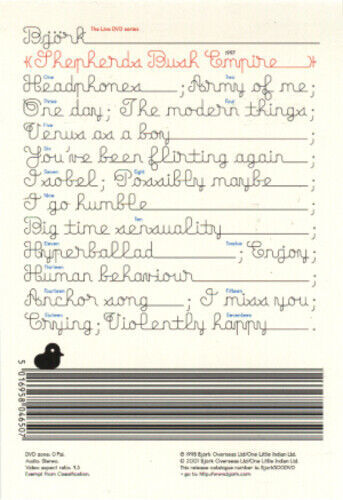 Björk The Live DVD series
1997
《Shepherds Bush Empire》
One Two
Headphones ; Army of me;
Three
One day; The modern things;
Five
Venus as a boy ;
Six
You've been flirting again ;
Seven Eight
Isobel; Possibly maybe ;
Nine
I go humble ;
Ten
Big time sensuality ;
Eleven Twelve
Hyperballad ; Enjoy;
Thirteen
Human behaviour ;
Fourteen Fifteen
Anchor song ; I miss you;
Sixteen Seventeen
Crying; Violently happy .
5 016958 046507
DVD zone. 0 Pal.
Audio. Stereo.
Exempt from Classification.
© 1998 Bjork Overseas Ltd/One Little Indian Ltd.
© 2001 Bjork Overseas Ltd/One Little Indian Ltd.
This release catalogue number is: Bjork500DVD